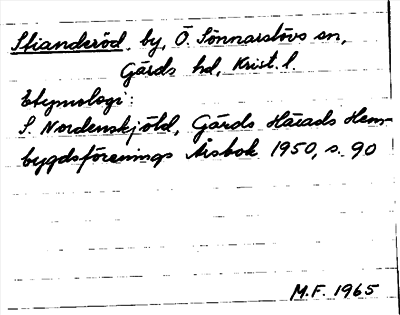 Stianderöd, by, Ö. Sönnarslövs sn,
Gärds hd, Krist. l.
Etymologi:
S. Nordenskjöld, Gärds Härads Hem-
bygdsförenings Årsbok 1950, s. 90
M.F. 1965